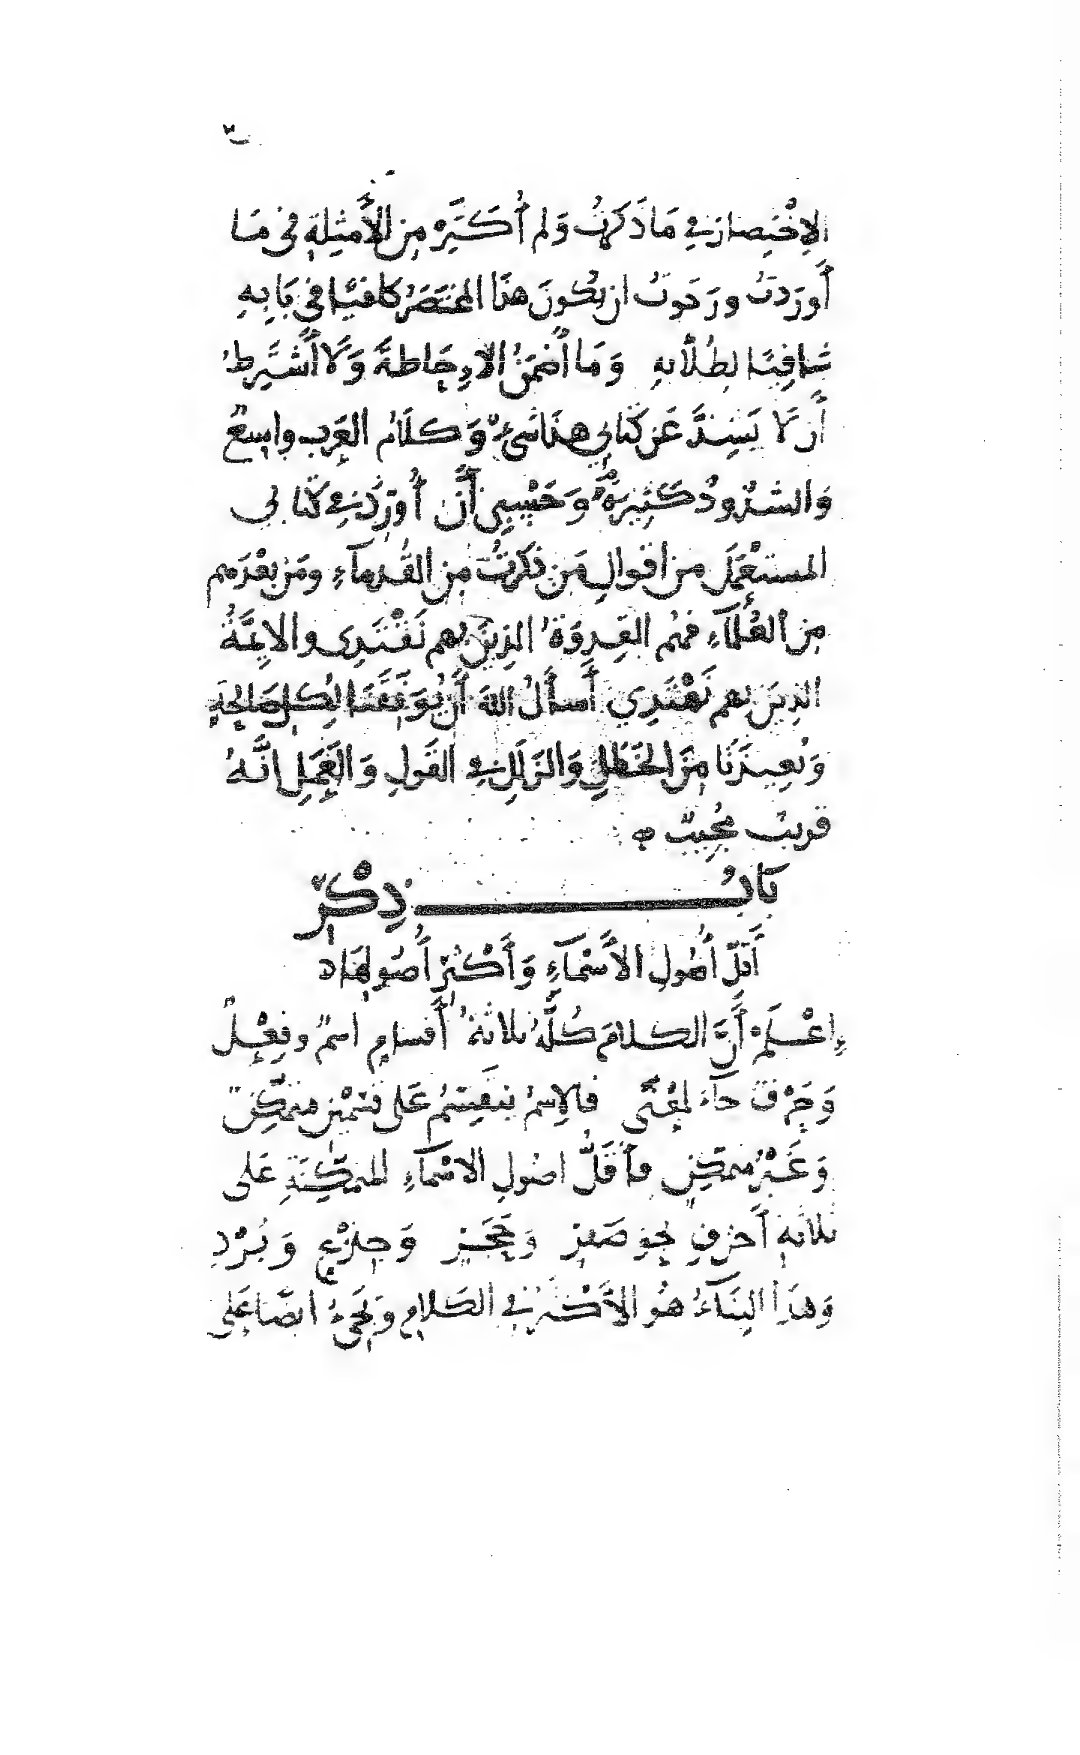 الاِخْتِصارَ في مَا ذَكَرتُ وَلم أُكَثِّرْ مِن الأَمثِلةِ فى مَا
أَورَدتُ ورَجَوتُ ان يَكُونَ هذَا المختَصَرُ كافيًا فى بَابِهِ
شَافِيًا لطُلَّابهِ وَمَا أَضمَنُ الاِحَاطةَ وَلَا أَشتَرِطُ
أَن لَا يَشِذَّ عَن كتابى هذا شىءٌ وَكلَامُ العَرَبِ واسِعٌ
وَالشذوذُ كَثِيرةٌ وَحَسْبِى أَن أُورِدَ في كتابى
المستَعْمَلَ من أقوالِ مَن ذكرتُ مِن القُدماءِ ومَن بعْدَهم
مِن العُلمَآءِ فهُم القِدوَةُ الذِينَ بهم نَقْتَدِى والايِمَّةُ
الذِينَ بهم نَهْتَدِي أَسأَلُ اللهَ أَن يُوَفِّقَنَا لِكلِ صَالِحَةٍ
وَيُعِيذَنَا مِنَ الخَطَلِ وَالزَلَلِ في القَولِ وَالعَمَلِ انَّهُ
قريبٌ مجُيبٌ
بَابُ ذِكْرِ
أَقَلِّ أُصُولِ الأَسْمَآءِ وَأَكْثَرِ أُصُولِهَا
اِعْلَمْ أَنَّ الكلامَ كُلَّهُ ثلاثةُ أَقسامٍ اسمٌ وفِعْلٌ
وَحَرْفٌ جآءَ لمعْنًى فالاِسمُ ينقَسِمُ عَلى قسْمَيْنِ متمَكّنٌ
وَغَيْرُ متمكّنٍ فأَقَلُّ اصُولِ الاسْمآءِ المتمكّنَةِ عَلى
ثلاثةِ أَحرفٍ نحو صَقرٍ وَحَجَرٍ وَجِذْعٍ وَبُرْدٍ
وَهذَا البِنَآءُ هُوَ الأَكْثَرُ في الكَلامِ وَيجىُ ايضًا عَلى